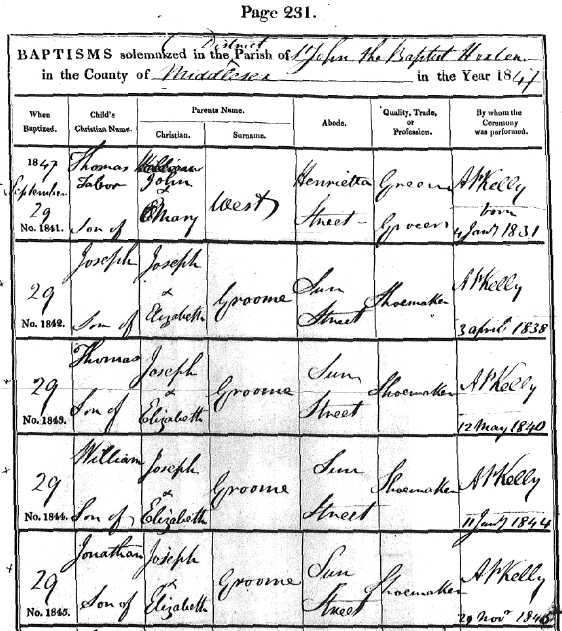 Page 231.
District
BAPTISMS solemnized in the Parish of St John the Baptist Hoxton
in the County of Middlesex in the Year 1847
When Baptized.
Child's Christian Name.
Parents Name.
Christian.
Surname.
Abode.
Quality, Trade, or Profession.
By whom the Ceremony was performed.
1847
September
29
No. 1841.
Thomas
Tabor
Son of
John
&
Mary
West
Henrietta
Street
Green
Grocer
A P Kelly
born
4 Jany 1831
29
No. 1842.
Joseph
Son of
Joseph
&
Elizabeth
Groome
Sun
Street
Shoemaker
A P Kelly
3 april 1838
29
No. 1843.
Thomas
Son of
Joseph
&
Elizabeth
Groome
Sun
Street
Shoemaker
A P Kelly
12 May 1840
29
No. 1844.
William
Son of
Joseph
&
Elizabeth
Groome
Sun
Street
Shoemaker
A P Kelly
11 Jany 1844
29
No. 1845.
Jonathan
Son of
Joseph
&
Elizabeth
Groome
Sun
Street
Shoemaker
A P Kelly
29 Novr 1846